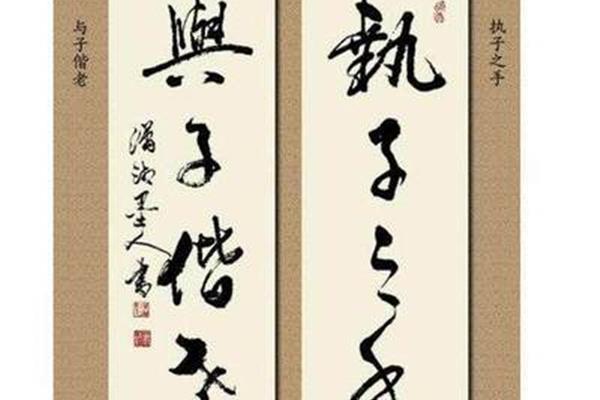 执子之手
執子之手
與子偕老
潇湘墨人書
与子偕老